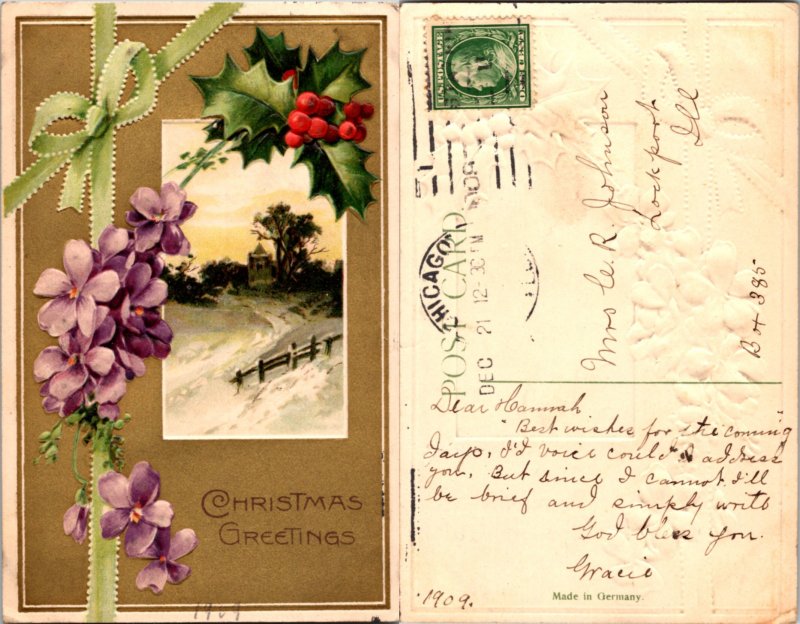 CHRISTMAS
GREETINGS
1909
U.S. POSTAGE
ONE CENT
CHICAGO
DEC 21 12-30 PM
POST CARD
Mrs C. R. Johnson
Lockport
Ill
Box 385
Dear Hannah
Best wishes for the coming
days, I'd voice could I address
you, But since I cannot I'll
be brief and simply write
God bless you.
Gracie
1909.
Made in Germany.